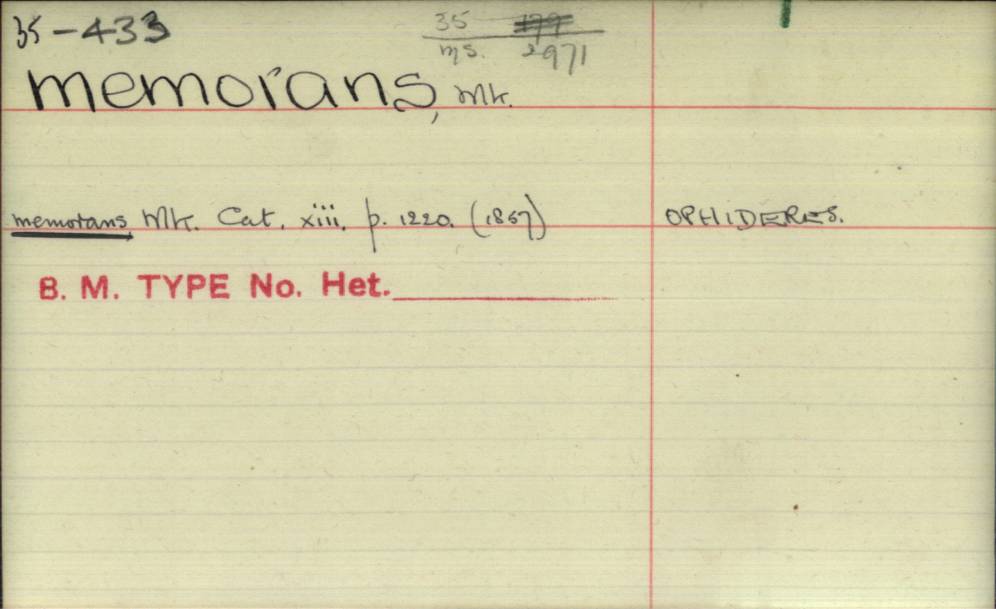 35-433
35
ms. 2971
memorans, Wlk.
memorans, Wlk. Cat. xiii. p. 1220. (1857) OPHIDERES.
B. M. TYPE No. Het.